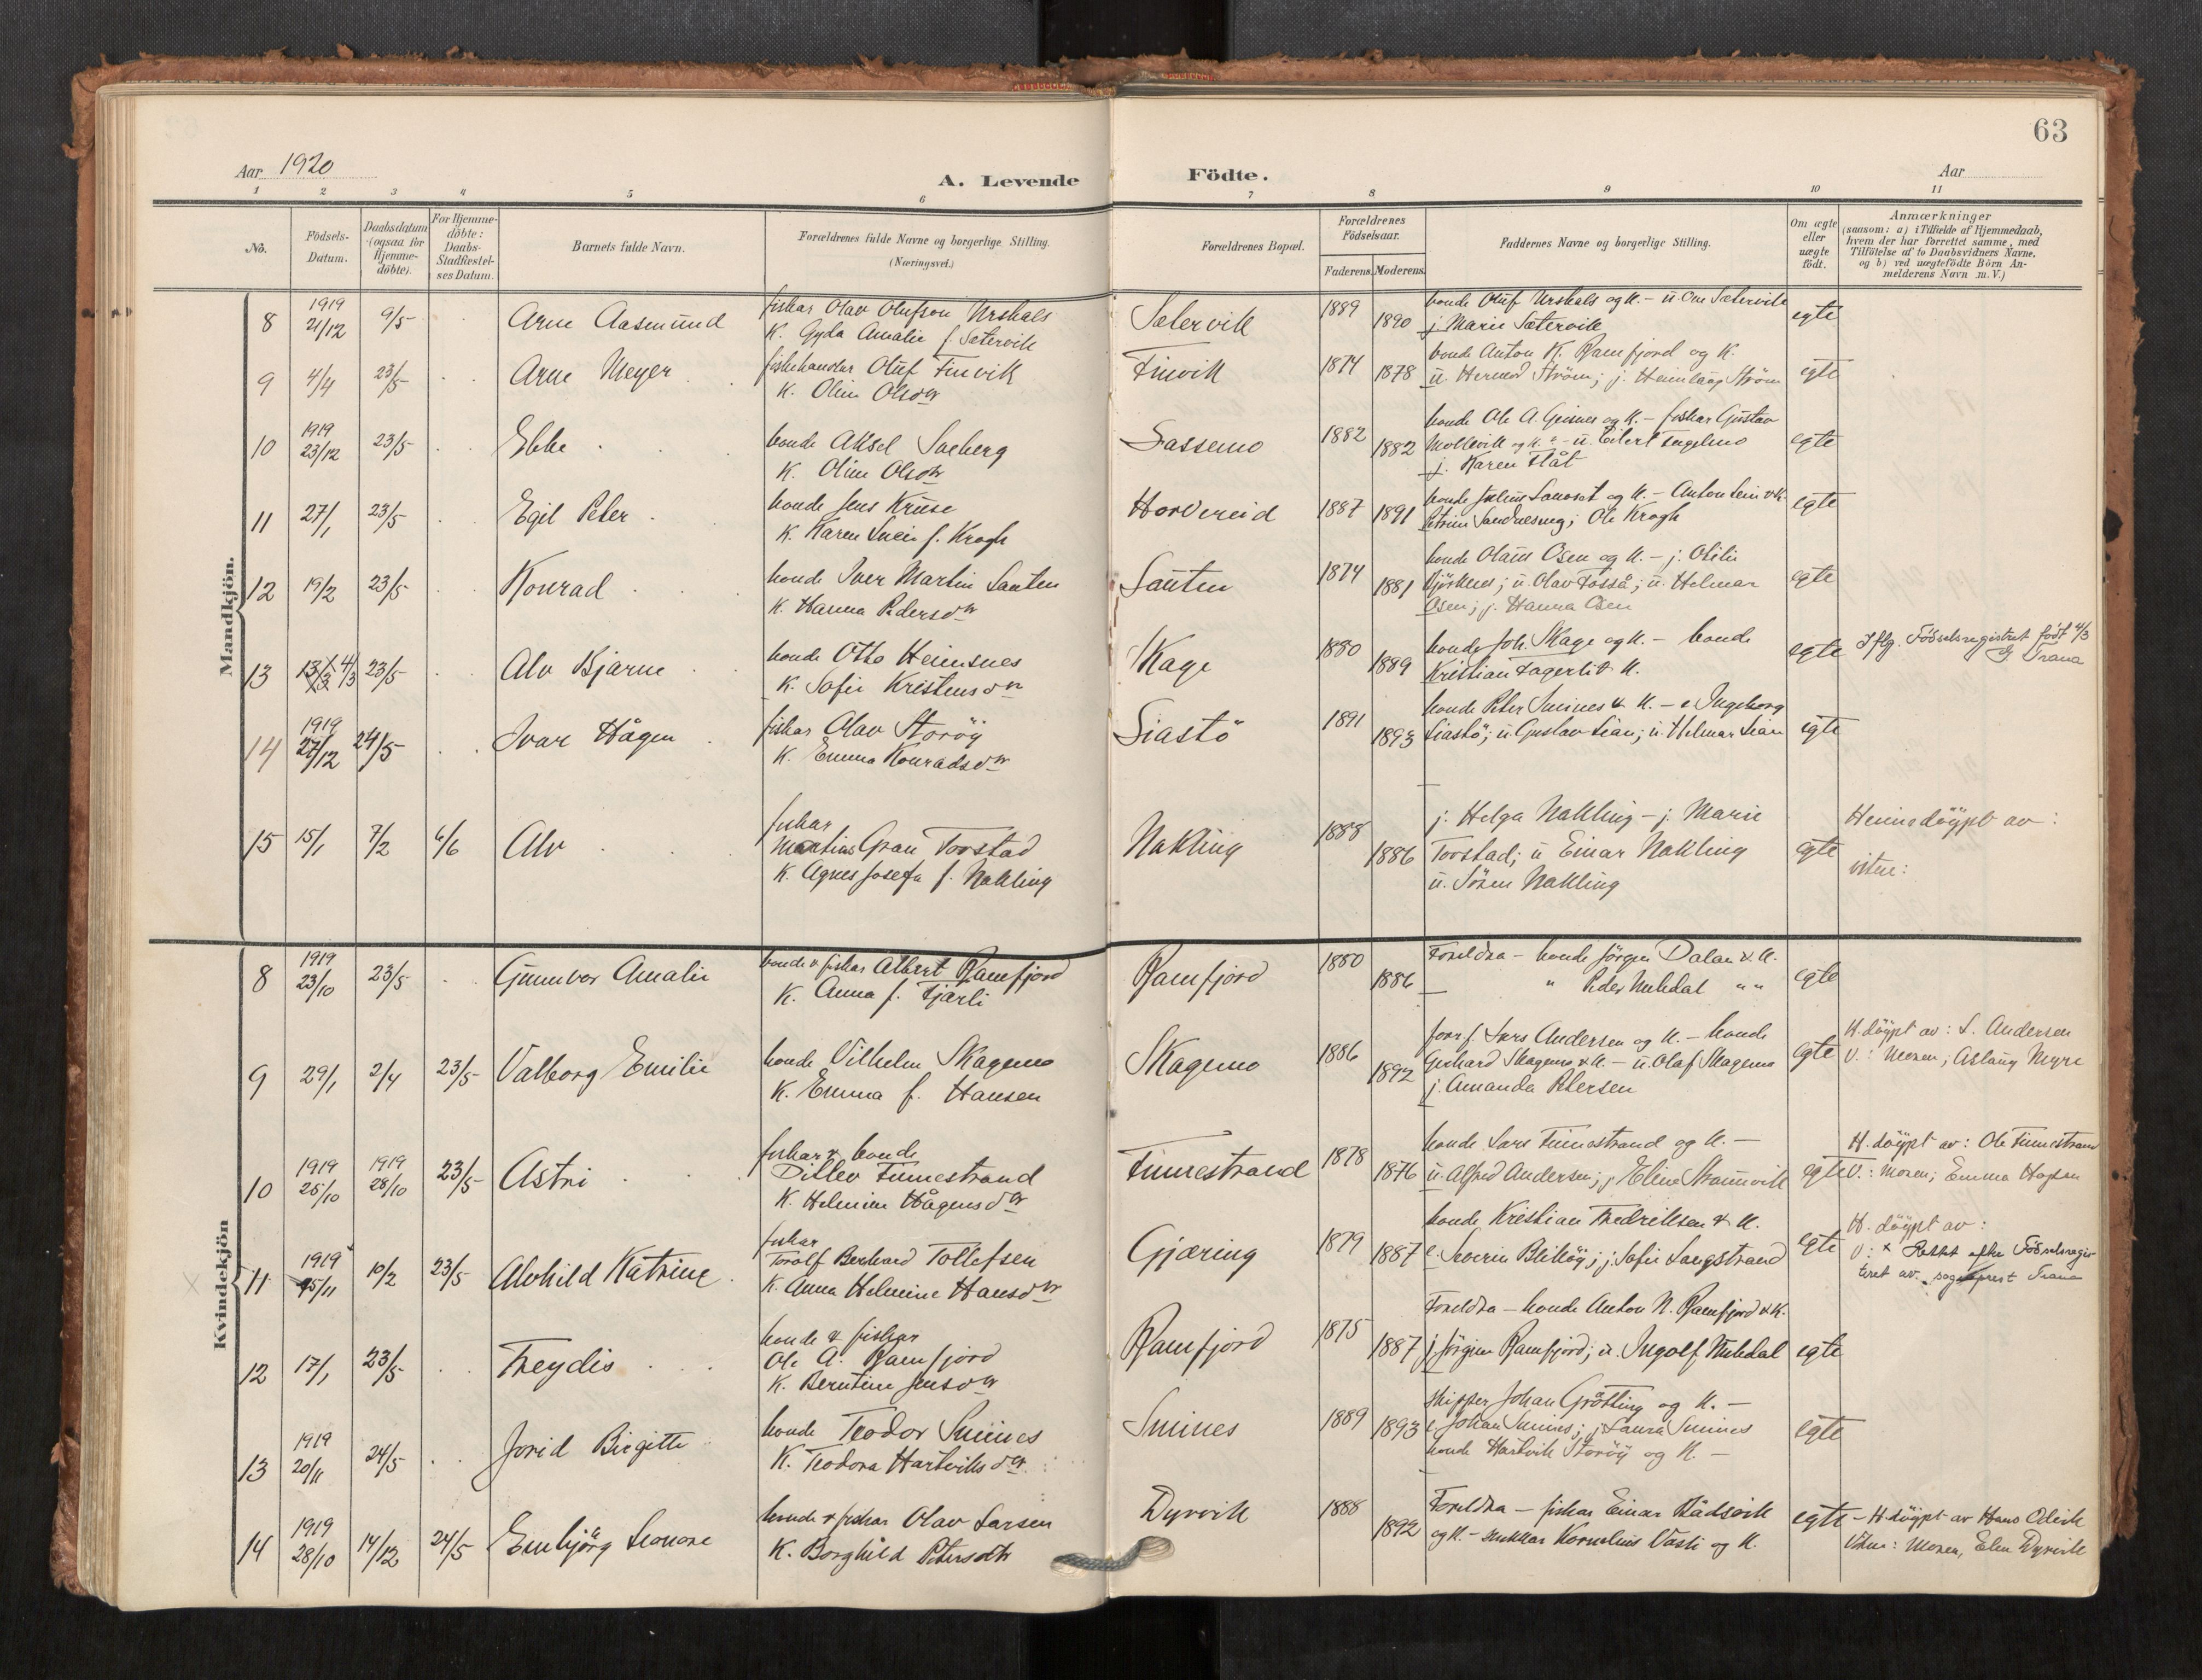 63
Aar 1920
A. Levende Födte.
Aar
1 2 3 4 5 6 7 8 9 10 11
No.
Födsels-Datum.
Daabsdatum (ogsaa for Hjemme-döbte).
For Hjemme-döbte: Daabs-Stadfæstel-ses Datum.
Barnets fulde Navn.
Forældrenes fulde Navne og borgerlige Stilling. (Næringsvei.)
Forældrenes Bopæl.
Forældrenes Födselsaar.
Faderens. Moderens.
Faddernes Navne og borgerlige Stilling.
Om ægte eller uægte født.
Anmærkninger
(saasom: a) i Tilfælde af Hjemmedaab,
hvem der har forrettet samme, med
Tilföielse af to Daabsvidners Navne,
og b) ved uægtefödte Börn An-
melderens Navn m. V.)
Mandkjön.
8 1919 21/12 9/5 Arne Aasmund fiskar Olav Olufson Urskals Setervik 1889 bonde Oluf Urskals og K. - u. Ove Sætervik egte
K. Gyda Amalie f. Setervik 1890 j Marie Sætervik
9 4/4 23/5 Arne Meyer fiskehandlar Oluf Finvik Finvik 1874 bonde Anton K. Ramfjord og K. egte
K. Oline Olsdtr 1878 u. Hermod Ström; j. Ström
10 1919 23/12 23/5 Ebbe bonde Aksel Soeberg Sassemo 1882 bonde Ole A. Geisnes og K. - fiskar Gustav
K. Oline Olsdtr 1882 Mollevik og K. - u. Eilert Engelmo egte
j. Karen Flåt
11 27/1 23/5 Egil Peter bonde Jens Kruse Horvereid 1887 bonde og K. - Anton Lein & K. egte
K. Karen f. Krogh 1891 Ole Krogh
12 19/2 23/5 Konrad bonde Iver Martin Sauten Sauten 1874 bonde Olaus Osen og K. - j. Otilie
K. Hanna Pedersdtr 1881 u. Olav Fosså; u. Helmar egte
Osen; j. Hanna Osen
13 4/3 23/5 Alv Bjarne bonde Otto Heimsnes Skage 1880 bonde Joh. Skage og K. - bonde egte Iflg. Födselsregistret födt 4/3
K. Sofie Kristensdtr 1889 Kristian Fagerli & K. Trana
14 1919 27/12 24/5 Ivar Hågen fiskar Olav Storöy Siastö 1891 bonde Peter Smines & K. - e Ingeborg
K. Emma Konradsdtr 1893 Siastö; u Gustav Lian; u. Helmar Lian egte
15 15/1 7/2 6/6 Alv fiskar Nakling 1888 j. Helga Nakling - j. Marie Heimedöypt av:
Martin Gran Torstad 1886 Torstad; u Einar Nakling egte
K. Agnes Josefa f. Nakling u. Sören Nakling vitne:
Kvindekjön
8 1919 23/10 23/5 Gunvor Amalie bonde & fiskar Albert Ramfjord Ramfjord 1880 Foreldra - bonde Jörgen Dalan & K. egte
K. Anna f. Fjærli 1886 " Peder " "
9 29/1 2/4 23/5 Valborg Emilie bonde Vilhelm Skagemo Skagemo 1886 Lars Andersen og K. - bonde H. döypt av: L. Andersen
K. Emma f. Hansen 1892 Gerhard Skagemo & K. - u. Olaf Skagemo egte V.: Moren; Aslaug Myre
j. Amanda Petersen
10 1919 25/10 1919 28/10 23/5 Astri fiskar & bonde Finnestrand 1878 bonde Lars Finnestrand og K. - H. döypt av: Ole Finnestrand
Ditlev Finnestrand 1876 u Alfred Andersen; j Eline Straumvik egte V.: Moren; Emma
K. Helmine Hågensdtr
11 1919 x 25/11 10/2 23/5 Alvhild Katrine fiskar Gjæring 1879 bonde Kristian Fredriksen & K. egte H. döypt av:
Torolf Berhard Tollefsen 1887 e. Severin Bliköy; j. Sofie Langstrand V.: x Rettet efter Födselsregis-
K. Anna Helmine Hansdtr teret av sogneprest Trana
12 17/1 23/5 Freydis bonde & fiskar Ramfjord 1875 Foreldra - bonde Anton N. Ramfjord & K.
Ole A. Ramfjord 1887 j Jörgine Ramfjord; u. Ingolf egte
K. Berntine Jensdtr
13 1919 20/11 24/5 Jorid Birgitte bonde Teodor Smines Smines 1889 skipper Johan Grötting og K. -
K. Teodora Hartviksdtr 1893 e Johan Smines; j Laura Smines egte
bonde Hartvik Storöy og K. -
14 1919 28/10 14/12 24/5 Embjörg Leonore bonde & fiskar Olav Larsen Dyrvik 1888 Foreldra - fiskar Einar Rådsvik egte - H. döypt av Hans Odvik
K. Borghild Petersdtr 1892 og K. - snikkar Kornelius Vasli og K. Vitne: Moren, Elen Dyrvik